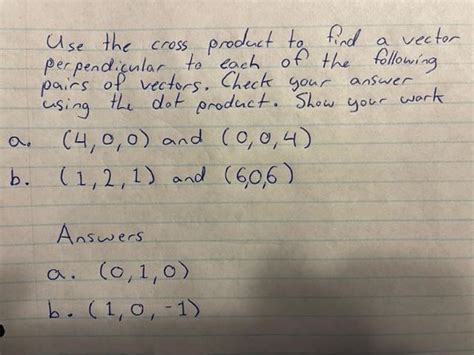 Use the cross product to find a vector
perpendicular to each of the following
pairs of vectors. Check your answer
using the dot product. Show your work
a. (4,0,0) and (0,0,4)
b. (1,2,1) and (6,0,6)
Answers
a. (0,1,0)
b. (1,0,-1)